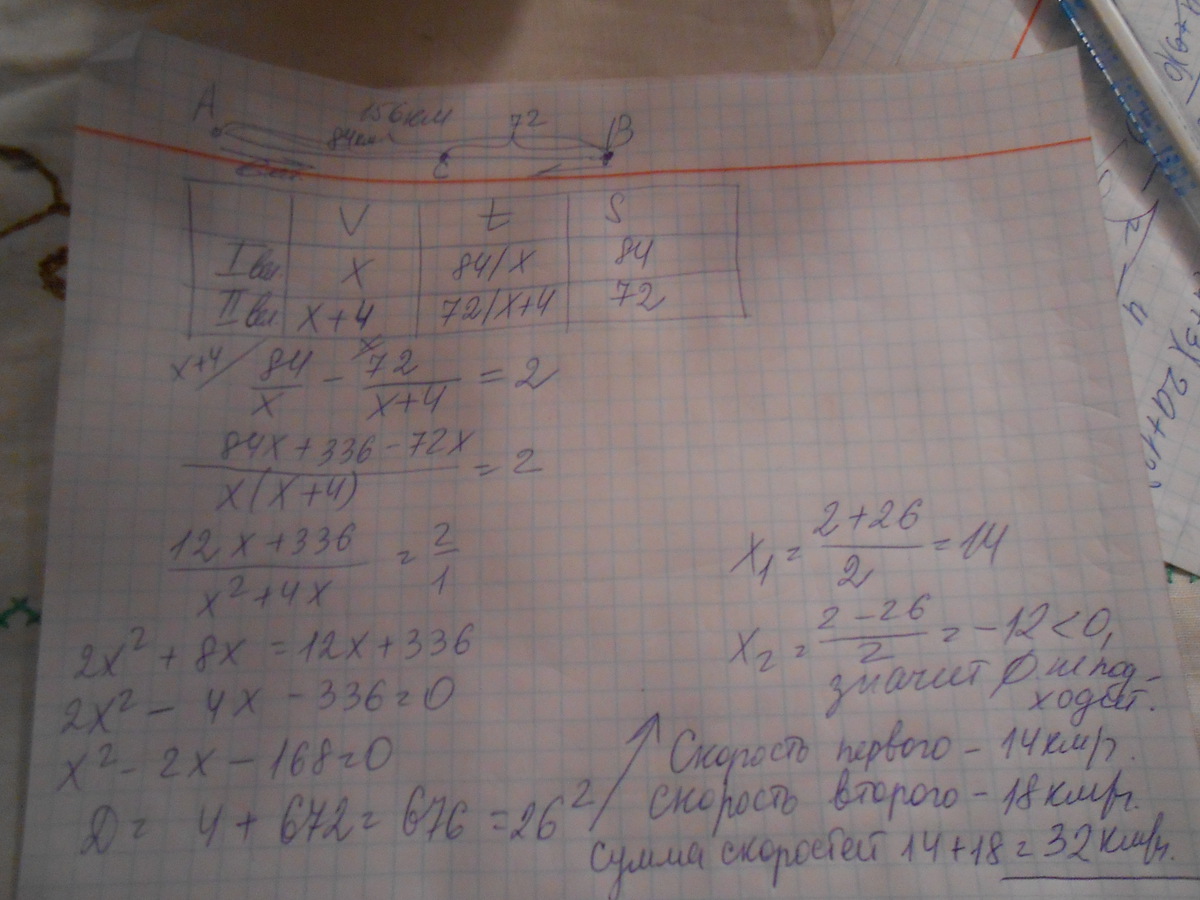 A 156км 72 B
84км C
V t S
I вел. x 84/x 84
II вел. x+4 72/x+4 72
x+4/ 84/x - x/ 72/x+4 = 2
84x+336-72x / x(x+4) = 2
12x+336 / x²+4x = 2/1
2x² + 8x = 12x+336
2x² - 4x - 336=0
x² - 2x - 168=0
D = 4 + 672 = 676 = 26²
x₁ = 2+26 / 2 = 14
x₂ = 2-26 / 2 = -12<0,
значит не под-
ходит.
Скорость первого - 14 км/ч.
Скорость второго - 18 км/ч.
сумма скоростей 14+18=32 км/ч.